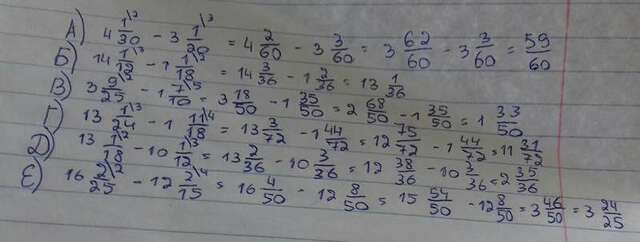 А) 4 1/30 \2 - 3 1/20 \3 = 4 2/60 - 3 3/60 = 3 62/60 - 3 3/60 = 59/60
Б) 14 1/12 \3 - 1 1/18 \2 = 14 3/36 - 1 2/36 = 13 1/36
В) 3 9/25 \2 - 1 7/10 \5 = 3 18/50 - 1 35/50 = 2 68/50 - 1 35/50 = 1 33/50
Г) 13 1/24 \3 - 1 11/18 \4 = 13 3/72 - 1 44/72 = 12 75/72 - 1 44/72 = 11 31/72
Д) 13 1/18 \2 - 10 1/12 \3 = 13 2/36 - 10 3/36 = 12 38/36 - 10 3/36 = 2 35/36
Е) 16 2/25 \2 - 12 2/15 \4 = 16 4/50 - 12 8/50 = 15 54/50 - 12 8/50 = 3 46/50 = 3 24/25